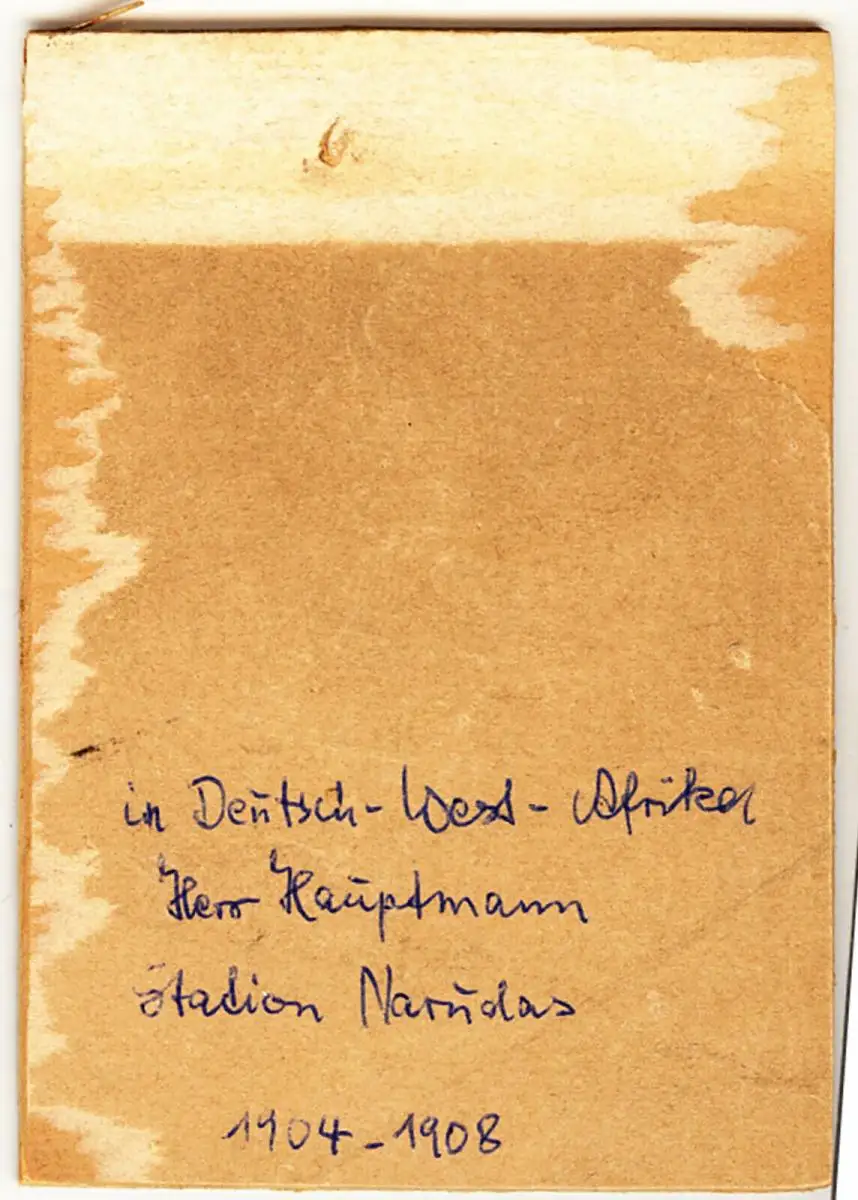 in Deutsch-West-Afrika
Herr Hauptmann
Station Narudas
1904-1908